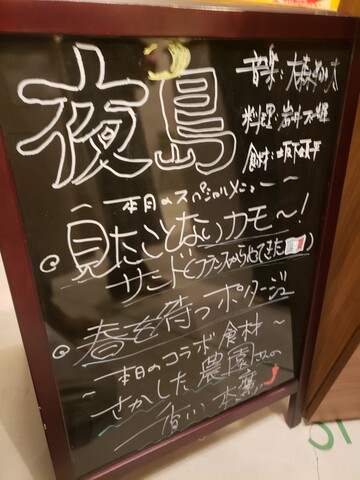 夜島
音楽:大森
料理:岩井
食材:坂下
〜本日のスペシャルメニュー〜
◎見たことないカモ〜!
サンド(フランスからやってきた)
◎春を待つポタージュ
〜本日のコラボ食材〜
さかした農園さんの
香川本鷹